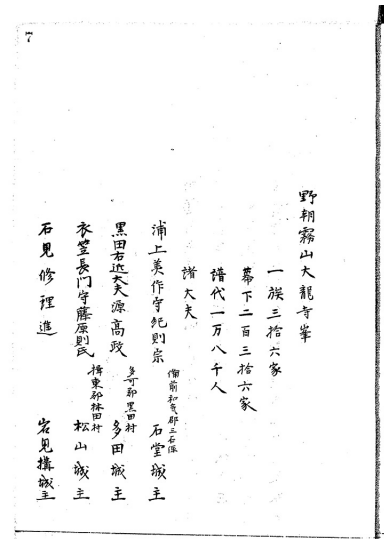 7
野朝霧山大龍寺峯
一族三拾六家
幕下二百三拾六家
譜代一万八千人
諸大夫
浦上美作守紀則宗 備前和気郡三石保 石堂城主
黒田右近大夫源高政 多可郡黒田村 多田城主
衣笠長門守藤原則氏 揖東郡林田村 松山城主
石見修理進 岩見搆城主